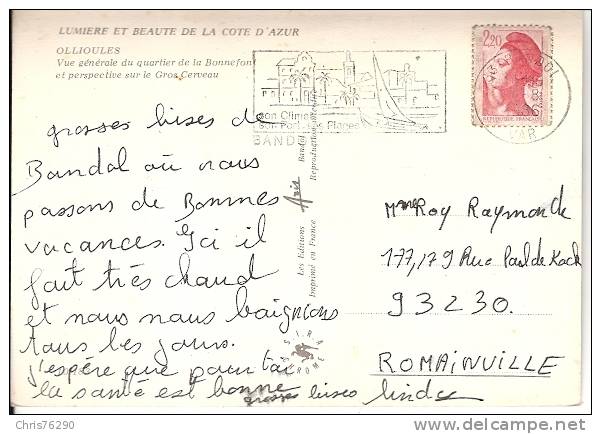 LUMIERE ET BEAUTE DE LA COTE D'AZUR
OLLIOULES
Vue générale du quartier de la Bonnefont
et perspective sur le Gros Cerveau
2,20
REPUBLIQUE FRANÇAISE
VAR
Son Climat
Son Port Plages
BAND
grosses bises de
Bandol où nous
passons de Bonnes
vacances. Ici il
fait très chaud
et nous nous baignons
tous les jours.
j'espère que pour toi
la santé est bonne
grosses bises linda
Les Editions Aris Bandol
Imprimé en France Reproduction interdite
Mme Roy Raymonde
177,179 Rue Paul de Kock
93230.
ROMAINVILLE
Chris76290
www.delcampe.net